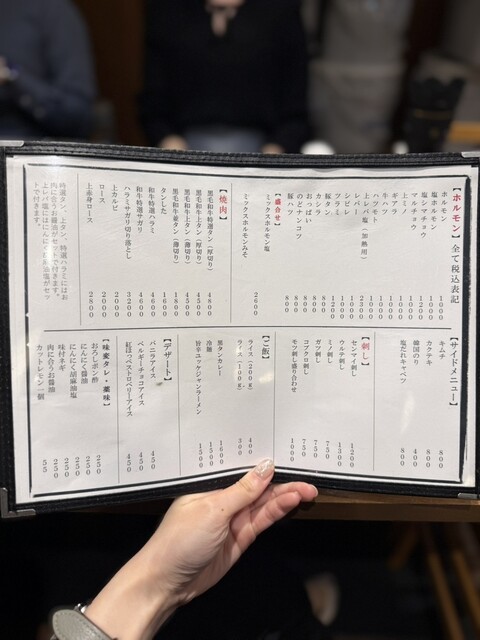 【ホルモン】全て税込表記
ホルモン 1000
塩ホルモン
塩シマチョウ
マルチョウ
上ミノ
ギアラ
牛ハツ
ハツモト
上レバ塩(加熱用)
レバー
シビレ
ツラミ
豚タン 800
カシラ 800
おっぱい 800
のどナンコツ 800
豚ハツ 800
【盛合せ】
ミックスホルモン塩
ミックスホルモンみそ 2600
【焼肉】
黒毛和牛特選タン(厚切り) 4800
黒毛和牛上タン(厚切り) 4500
黒毛和牛上タン(薄切り) 4500
黒毛和牛並タン(薄切り) 1800
タンした 1600
和牛特選ハラミ 4600
和牛特選サガリ 4000
ハラミサガリ切り落とし 3200
上カルビ 2000
ロース 2800
上赤身ロース 2800
【サイドメニュー】
キムチ 800
カクテキ 800
韓国のり 400
塩だれキャベツ 800
【刺し】
センマイ刺し 1200
ウルテ刺し 1300
ミノ刺し 750
ガツ刺し 750
コブクロ刺し 750
モツ刺し盛り合わせ 1000
【ご飯】
ライス(200g) 400
ライス(100g) 300
黒タンカレー 1600
冷麺 1500
旨辛ユッケジャンラーメン 1500
【デザート】
バニラアイス 450
ベルギーチョコアイス 450
紅ほっぺストロベリーアイス 450
【味変タレ・薬味】
おろしポン酢 250
にんにく醤油 250
にんにく胡麻油塩 250
味付ネギ 250
肉に合うお醤油 250
カットレモン一個 55